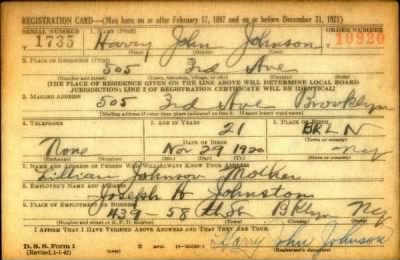 REGISTRATION CARD—(Men born on or after February 17, 1897 and on or before December 31, 1921)
SERIAL NUMBER 1. NAME (Print) ORDER NUMBER
1735 Harry John Johnson 10920
2. PLACE OF RESIDENCE (Print)
505 3rd Ave
(Number and street) (Town, township, village, or city) (County) (State)
[THE PLACE OF RESIDENCE GIVEN ON THE LINE ABOVE WILL DETERMINE LOCAL BOARD
JURISDICTION; LINE 2 OF REGISTRATION CERTIFICATE WILL BE IDENTICAL]
3. MAILING ADDRESS
505 3rd Ave Brooklyn
[Mailing address if other than place indicated on line 2. If same insert word same]
4. TELEPHONE 5. AGE IN YEARS 6. PLACE OF BIRTH
21 BKLN
DATE OF BIRTH (Town or county)
None Nov 29 1920 NY
(Mo.) (Day) (Yr.) (State or country)
7. NAME AND ADDRESS OF PERSON WHO WILL ALWAYS KNOW YOUR ADDRESS
Lillian Johnson Mother
8. EMPLOYER'S NAME AND ADDRESS
Joseph H Johnston
9. PLACE OF EMPLOYMENT OR BUSINESS
439 58th St BKlyn NY
(Number and street or R. F. D. number) (Town) (County) (State)
I AFFIRM THAT I HAVE VERIFIED ABOVE ANSWERS AND THAT THEY ARE TRUE.
D. S. S. Form 1
(Revised 1-1-42) Harry John Johnson
(Registrant's signature)